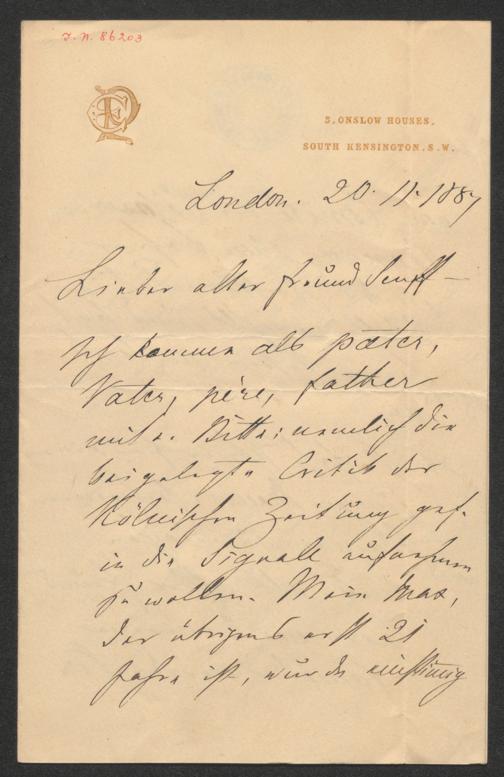 I. N. 86203
5, ONSLOW HOUSES,
SOUTH KENSINGTON. S. W.
London. 20. 11. 1887
Lieber alter Freund Senff —
Ich komme als pater,
Vater, père, father
mit e. Bitte: nemlich die
beigelegte Critik der
Kölnischen Zeitung gef.
in die Signale aufnehmen
zu wollen. Mein Max,
der übrigens erst 21
Jahre ist, wurde einstimmig